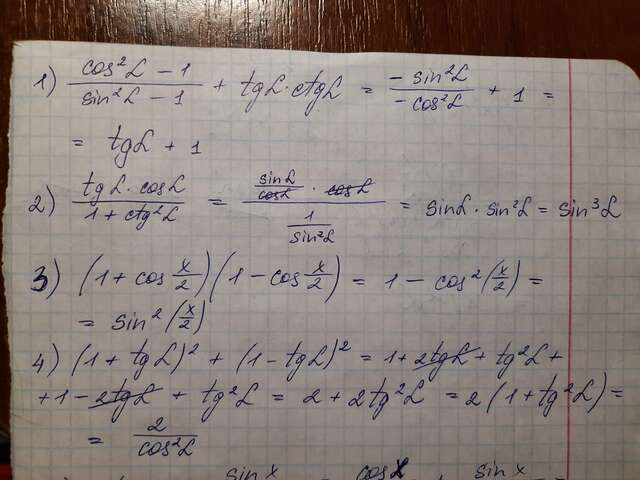 1) (cos²α - 1)/(sin²α - 1) + tgα·ctgα = (-sin²α)/(-cos²α) + 1 =
= tgα + 1
2) (tgα·cosα)/(1 + ctg²α) = (sinα/cosα · cosα)/(1/sin²α) = sinα·sin²α = sin³α
3) (1 + cos x/2)(1 - cos x/2) = 1 - cos²(x/2) =
= sin²(x/2)
4) (1 + tgα)² + (1 - tgα)² = 1 + 2tgα + tg²α +
+ 1 - 2tgα + tg²α = 2 + 2tg²α = 2(1 + tg²α) =
= 2/cos²α
sin x = cos x + sin x =